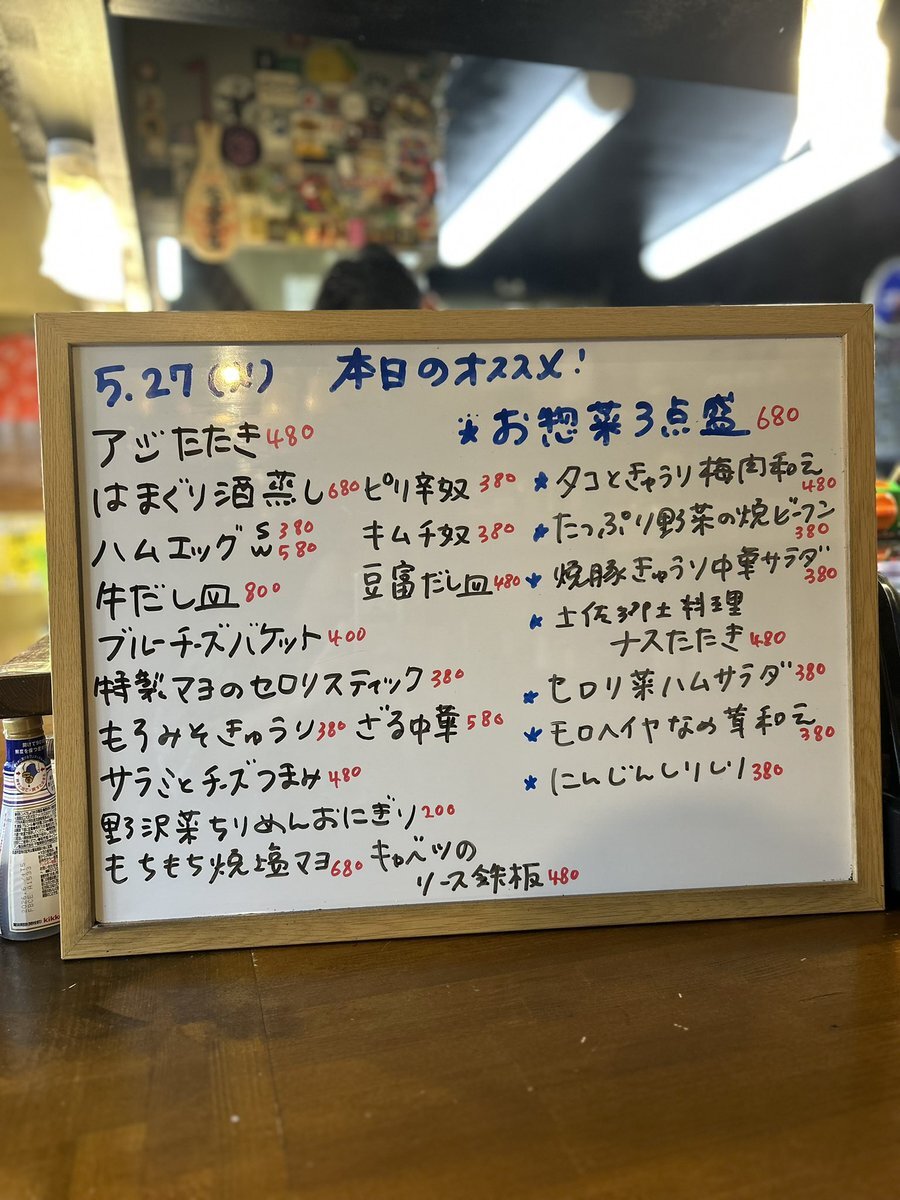 5.27(火) 本日のオススメ!
アジたたき 480
はまぐり酒蒸し 680 ピリ辛奴 380
ハムエッグ S 380 W 580 キムチ奴 380
牛だし皿 800 豆富だし皿 480
ブルーチーズバケット 400
特製マヨのセロリスティック 380
もろみそきゅうり 380 ざる中華 580
サラミとチーズつまみ 480
野沢菜ちりめんおにぎり 200
もちもち焼塩マヨ 680 キャベツの
ソース鉄板 480
★お惣菜3点盛 680
★タコときゅうり梅肉和え 480
★たっぷり野菜の焼ビーフン 380
★焼豚きゅうり中華サラダ 380
★土佐郷土料理
ナスたたき 480
★セロリ葉ハムサラダ 380
★モロヘイヤなめ茸和え 380
★にんじんしりしり 380